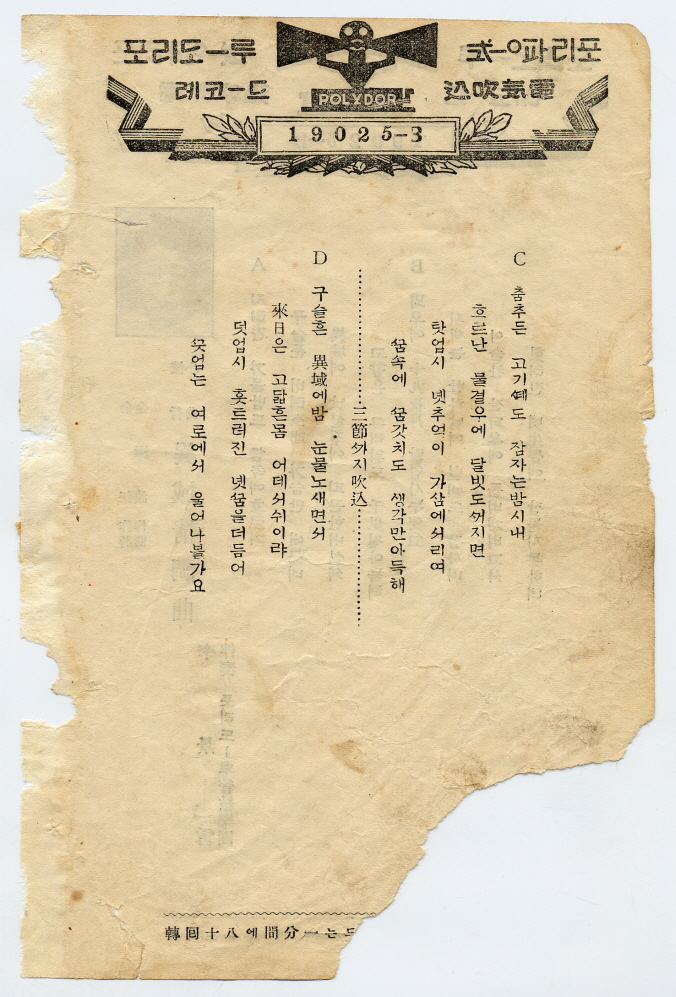 포리도-루
레코-드
포리파-o式
電氣吹込
POLYDOR
19025-3
C
춤추든 고기ᄯᅦ도 잠자는밤시내
흐르난 물결우에 달빗도ᄭᅥ지면
탓업시 녯추억이 가삼에서리여
ᄭᅮᆷ속에 ᄭᅮᆷ갓치도 생각만아득해
三節ᄭᅡ지吹込
D
구슬흔 異域에밤 눈물노새면서
來日은 고닯흔몸 어데서쉬이랴
덧업시 훗트러진 녯ᄭᅮᆷ을더듬어
ᄭᅳᆺ업는 여로에서 울어나볼가요
轉回十八에間分一는